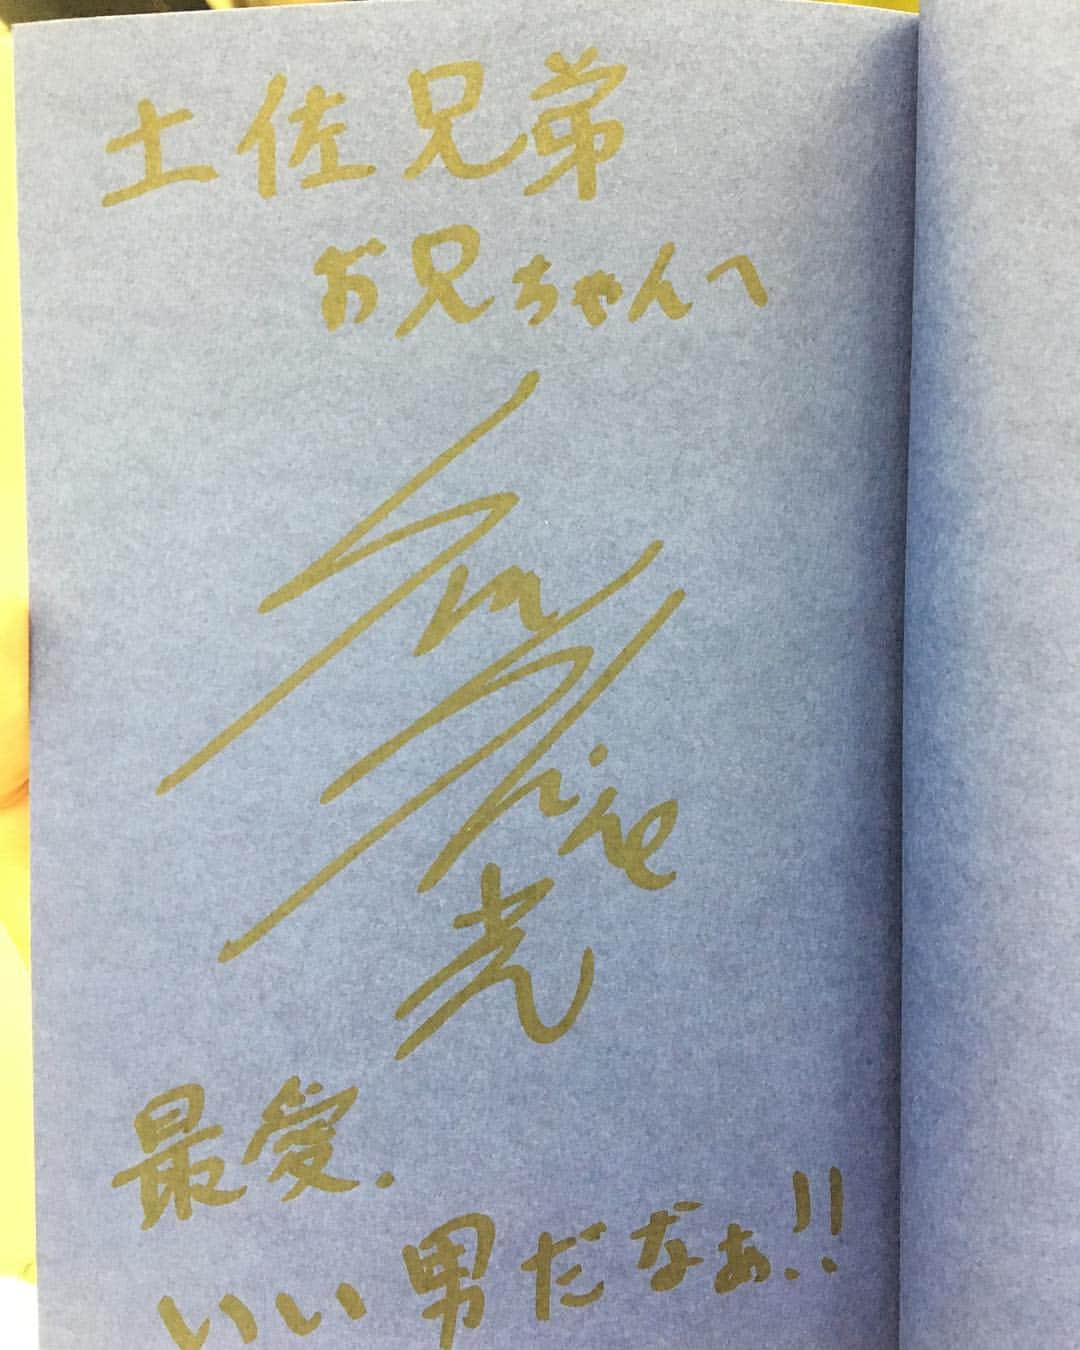 土佐兄弟
お兄ちゃんへ
Sun
Shine
光
最愛.
いい男だなぁ!!